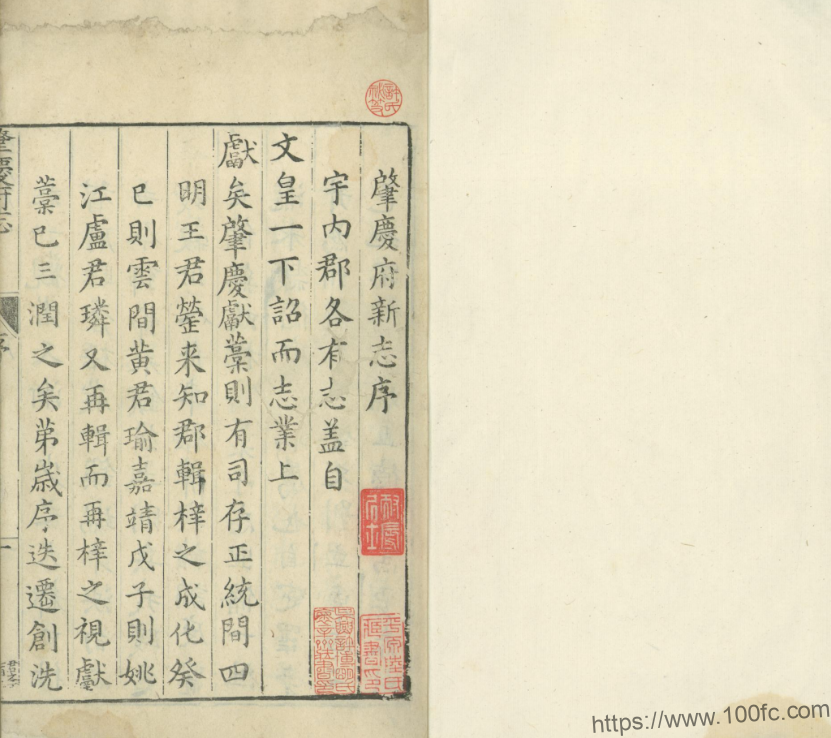 肇慶府新志序
宇内郡各有志盖自
文皇一下詔而志業上
獻矣肇慶獻藁則有司存正統間四
明王君鎣来知郡輯梓之成化癸
巳則雲間黄君瑜嘉靖戊子則姚
江盧君璘又再輯而再梓之視獻
藁已三潤之矣苐嵗序迭遷創洗
肇慶府志
序
一
https://www.100fc.com